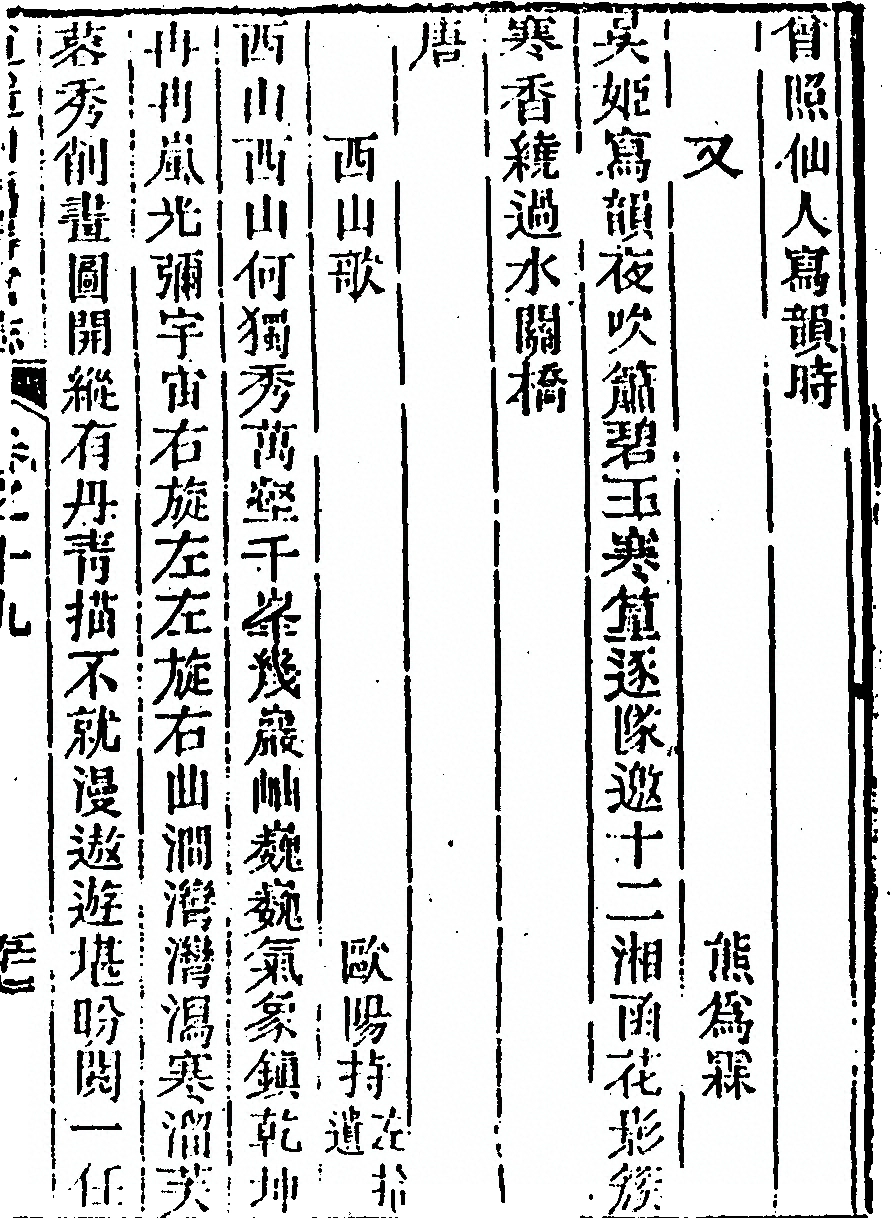 曾照仙人寫韻時
又 熊爲霖
吳姬寫韻夜吹簫碧玉寒篁逐隊邀十二湘函花影簇
寒香繞過水關橋
唐
西山歌 歐陽持 左拾遺
西山西山何獨秀萬壑千峯幾巖岫巍巍氣象鎮乾坤
冉冉嵐光彌宇宙右旋左左旋右曲澗灣灣瀉寒溜芙
蓉秀削畫圖開縱有丹青描不就漫遨遊堪盼閱一任
卷之十九